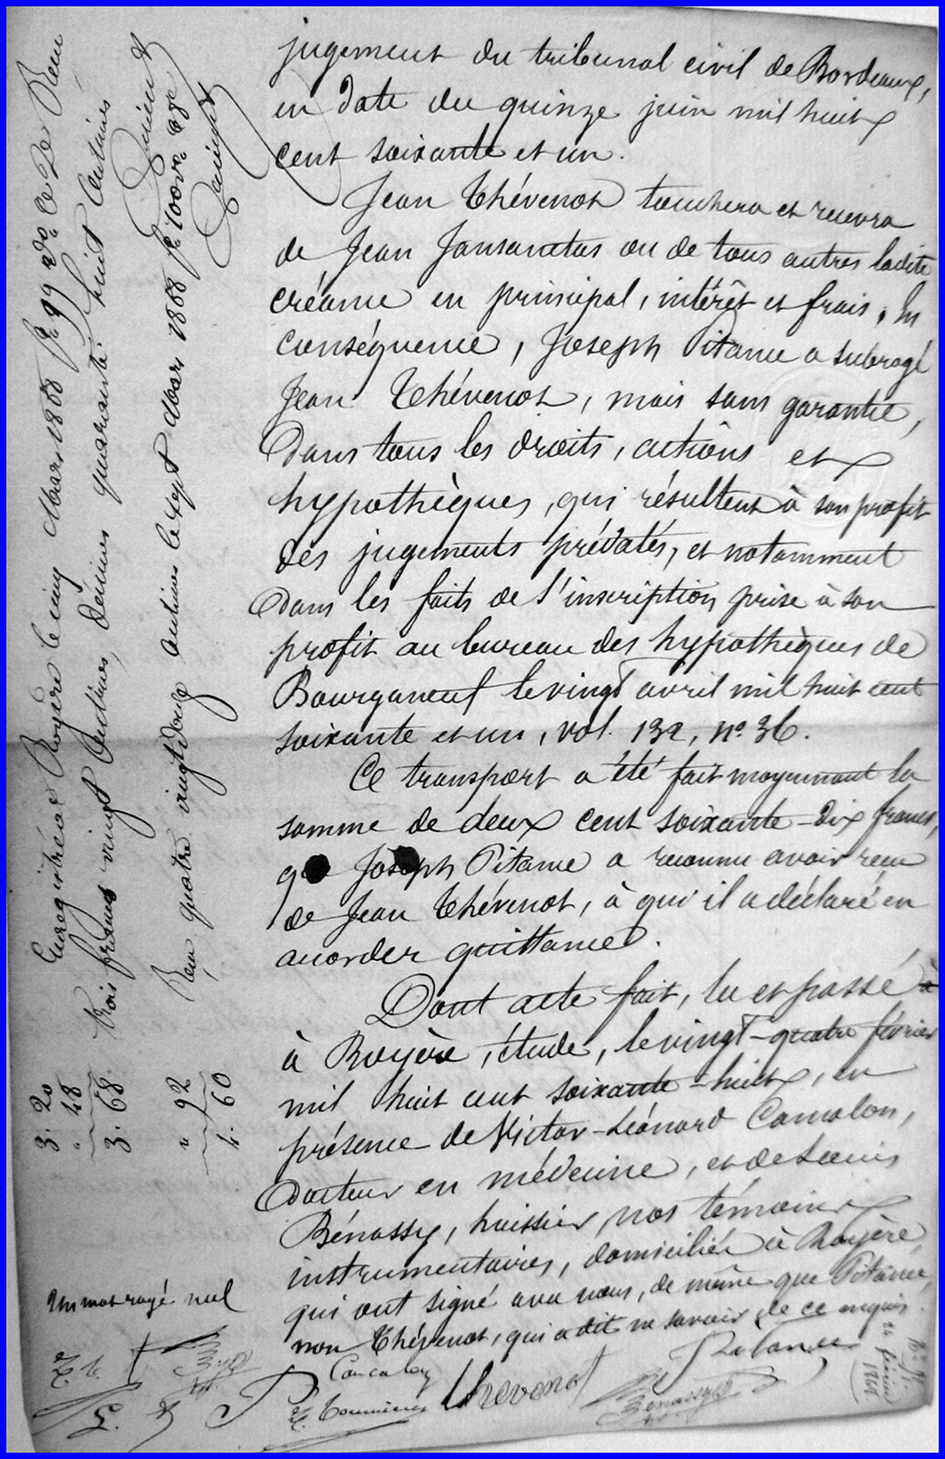 jugement du tribunal civil de Bordeaux,
en date du quinze juin mil huit
cent soixante et un.
Jean Thévenot touchera et recevra
de Jean Jansanetas ou de tous autres ladite
créance en principal, intérêt et frais. En
conséquence, Joseph Pitance a subrogé
Jean Thévenot, mais sans garantie,
dans tous les droits, actions et
hypothèques, qui résultent à son profit
des jugements prédatés, et notamment
dans les faits de l'inscription prise à son
profit au bureau des hypothèques de
Bourganeuf le vingt avril mil huit cent
soixante et un, vol. 132, nº 36.
Ce transport a été fait moyennant la
somme de deux cent soixante-dix francs,
Joseph Pitance a reconnu avoir reçu
de Jean Thévenot, à qui il a déclaré en
accorder quittance.
Dont acte fait, lu et passé à
à Royère, étude, le vingt-quatre février
mil huit cent soixante-huit, en
présence de Victor-Léonard Camalon,
docteur en médecine, et de Louis
Bénassy, huissier, nos témoins
instrumentaires, domiciliés à Royère,
qui ont signé avec nous, de même que Pitance,
non Thévenot, qui a dit ne savoir de ce requis
Un mot rayé nul
Pitance
Thevenot
Benassy
Enregistré à Royère le cinq Mars 1868 fº 99 vº Reçu
trois francs vingt centimes, décimes quarante huit centimes
Reçu quatre vingt douze centimes le sept Mars 1868 fº 100
3. 20
" 48
3. 68
" 92
4. 60